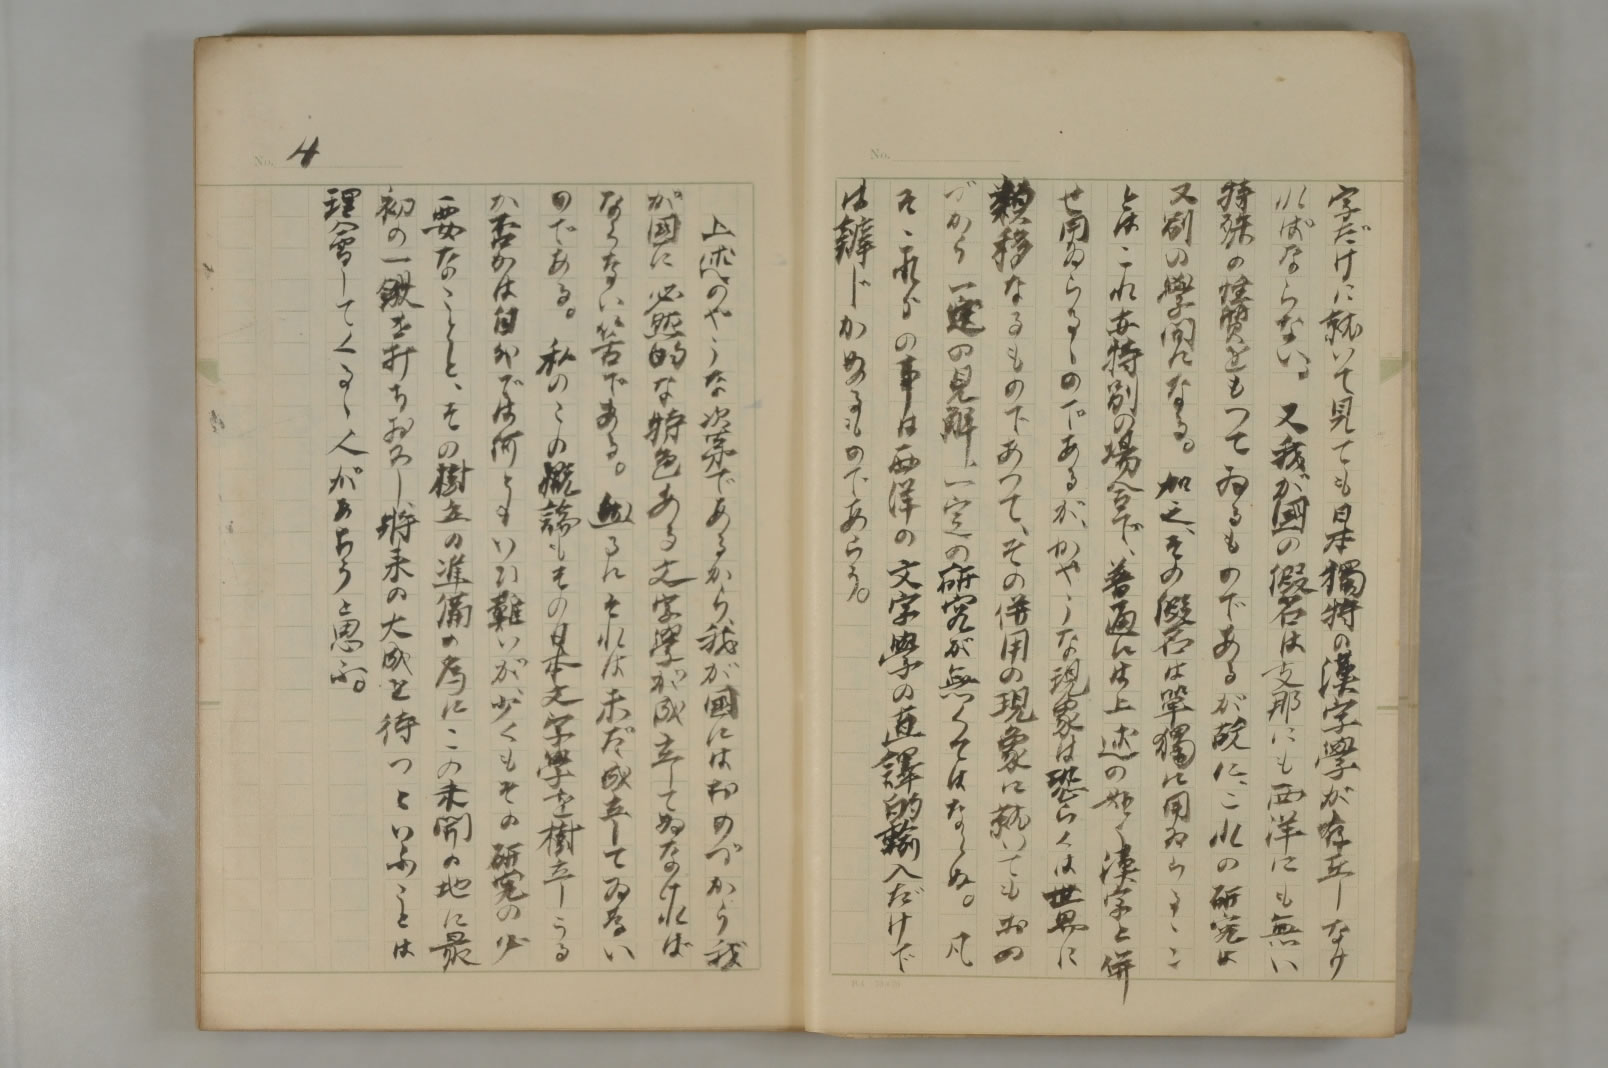 No.
字だけに就いて見ても日本獨特の漢字學が存立しなけ
ればならない。又我が國の假名は支那にも西洋にも無い
特殊の性質をもつてゐるものであるが故に、これの研究は
又別の學問になる。加之、その假名は單獨に用ゐらるゝこ
とはこれ亦特別の場合で、普通には上述の如く漢字と併
せ用ゐらるゝのであるが、かやうな現象は恐らくは世界に
類稀なるものであつて、その併用の現象に就いてもおの
づから一定の見解、一定の研究が無くてはならぬ。凡
そこれらの事は西洋の文字學の直譯的輸入だけで
は辨じかぬるものであらう。
No. 4
上述のやうな次第であるから我が國にはおのづから我
が國に必然的な特色ある文字學が成立してゐなければ
ならない筈である。然るにそれは未だ成立してゐない
のである。私のこの概論もその日本文字學を樹立しうる
か否かは自分では何ともいひ難いが、少くもその研究の必
要なことと、その樹立の準備の為にこの未開の地に最
初の一鍬を打ちおろし将来の大成を待つといふことは
理會してくるゝ人があらうと思ふ。